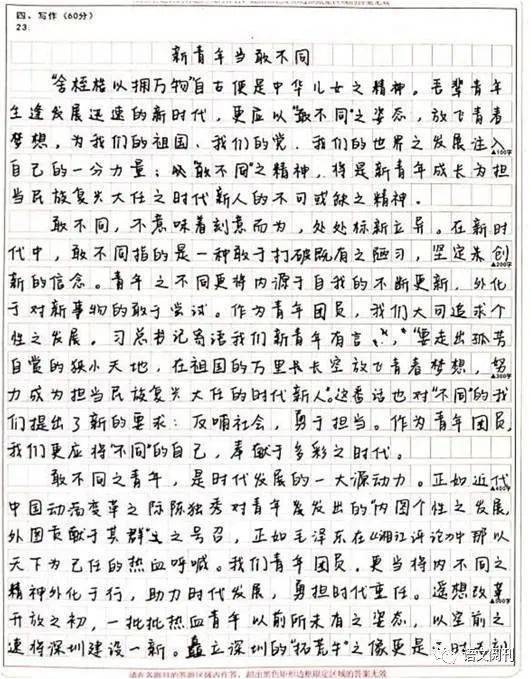 四、写作(60分)
23.
新青年当敢不同
“舍桎梏以拥万物”自古便是中华儿女之精神。吾辈青年
生逢发展迅速的新时代，更应以“敢不同”之姿态，放飞青春
梦想，为我们的祖国、我们的党、我们的世界之发展注入
▲100字
自己的一分力量；以“敢不同”之精神，将是新青年成长为担
当民族复兴大任之时代新人的不可或缺之精神．
敢不同，不意味着刻意而为，处处标新立异。在新时
代中，敢不同指的是一种敢于打破既有之陋习，坚定未创
▲200字
新的信念。青年之不同更将内源于自我的不断更新，外化
于对新事物的敢于尝试。作为青年团员，我们大可追求个
性之发展。习总书记寄语我们新青年有言，“要走出孤芳
自赏的狭小天地，在祖国的万里长长空放飞青春梦想，努
▲300字
力成为担当民族复兴大任的时代新人”。这番话也对“不同”的我
们提出了新的要求：反哺社会，勇于担当。作为青年团员，
我们更应将“不同”的自己，奉献于多彩之时代。
敢不同之青年，是时代发展的一大源动力。正如近代
▲400字
中国动荡变革之际陈独秀对青年发发出的“内图个性之发展，
外图贡献于其群”之号召，正如毛泽东在《湘江评论》中那以
天下为己任的热血呼喊。我们青年团员，更当将内不同之
精神外化于行，助力时代发展，勇担时代重任。遥想改革
▲500字
开放之初，一批批热血青年以前所未有之姿态，以空前之
速将深圳建设一新。矗立深圳的“拓荒牛”之像更是
语文阅刊
请在各题目的答题区域内作答，超出黑色矩形边框限定区域的答案无效